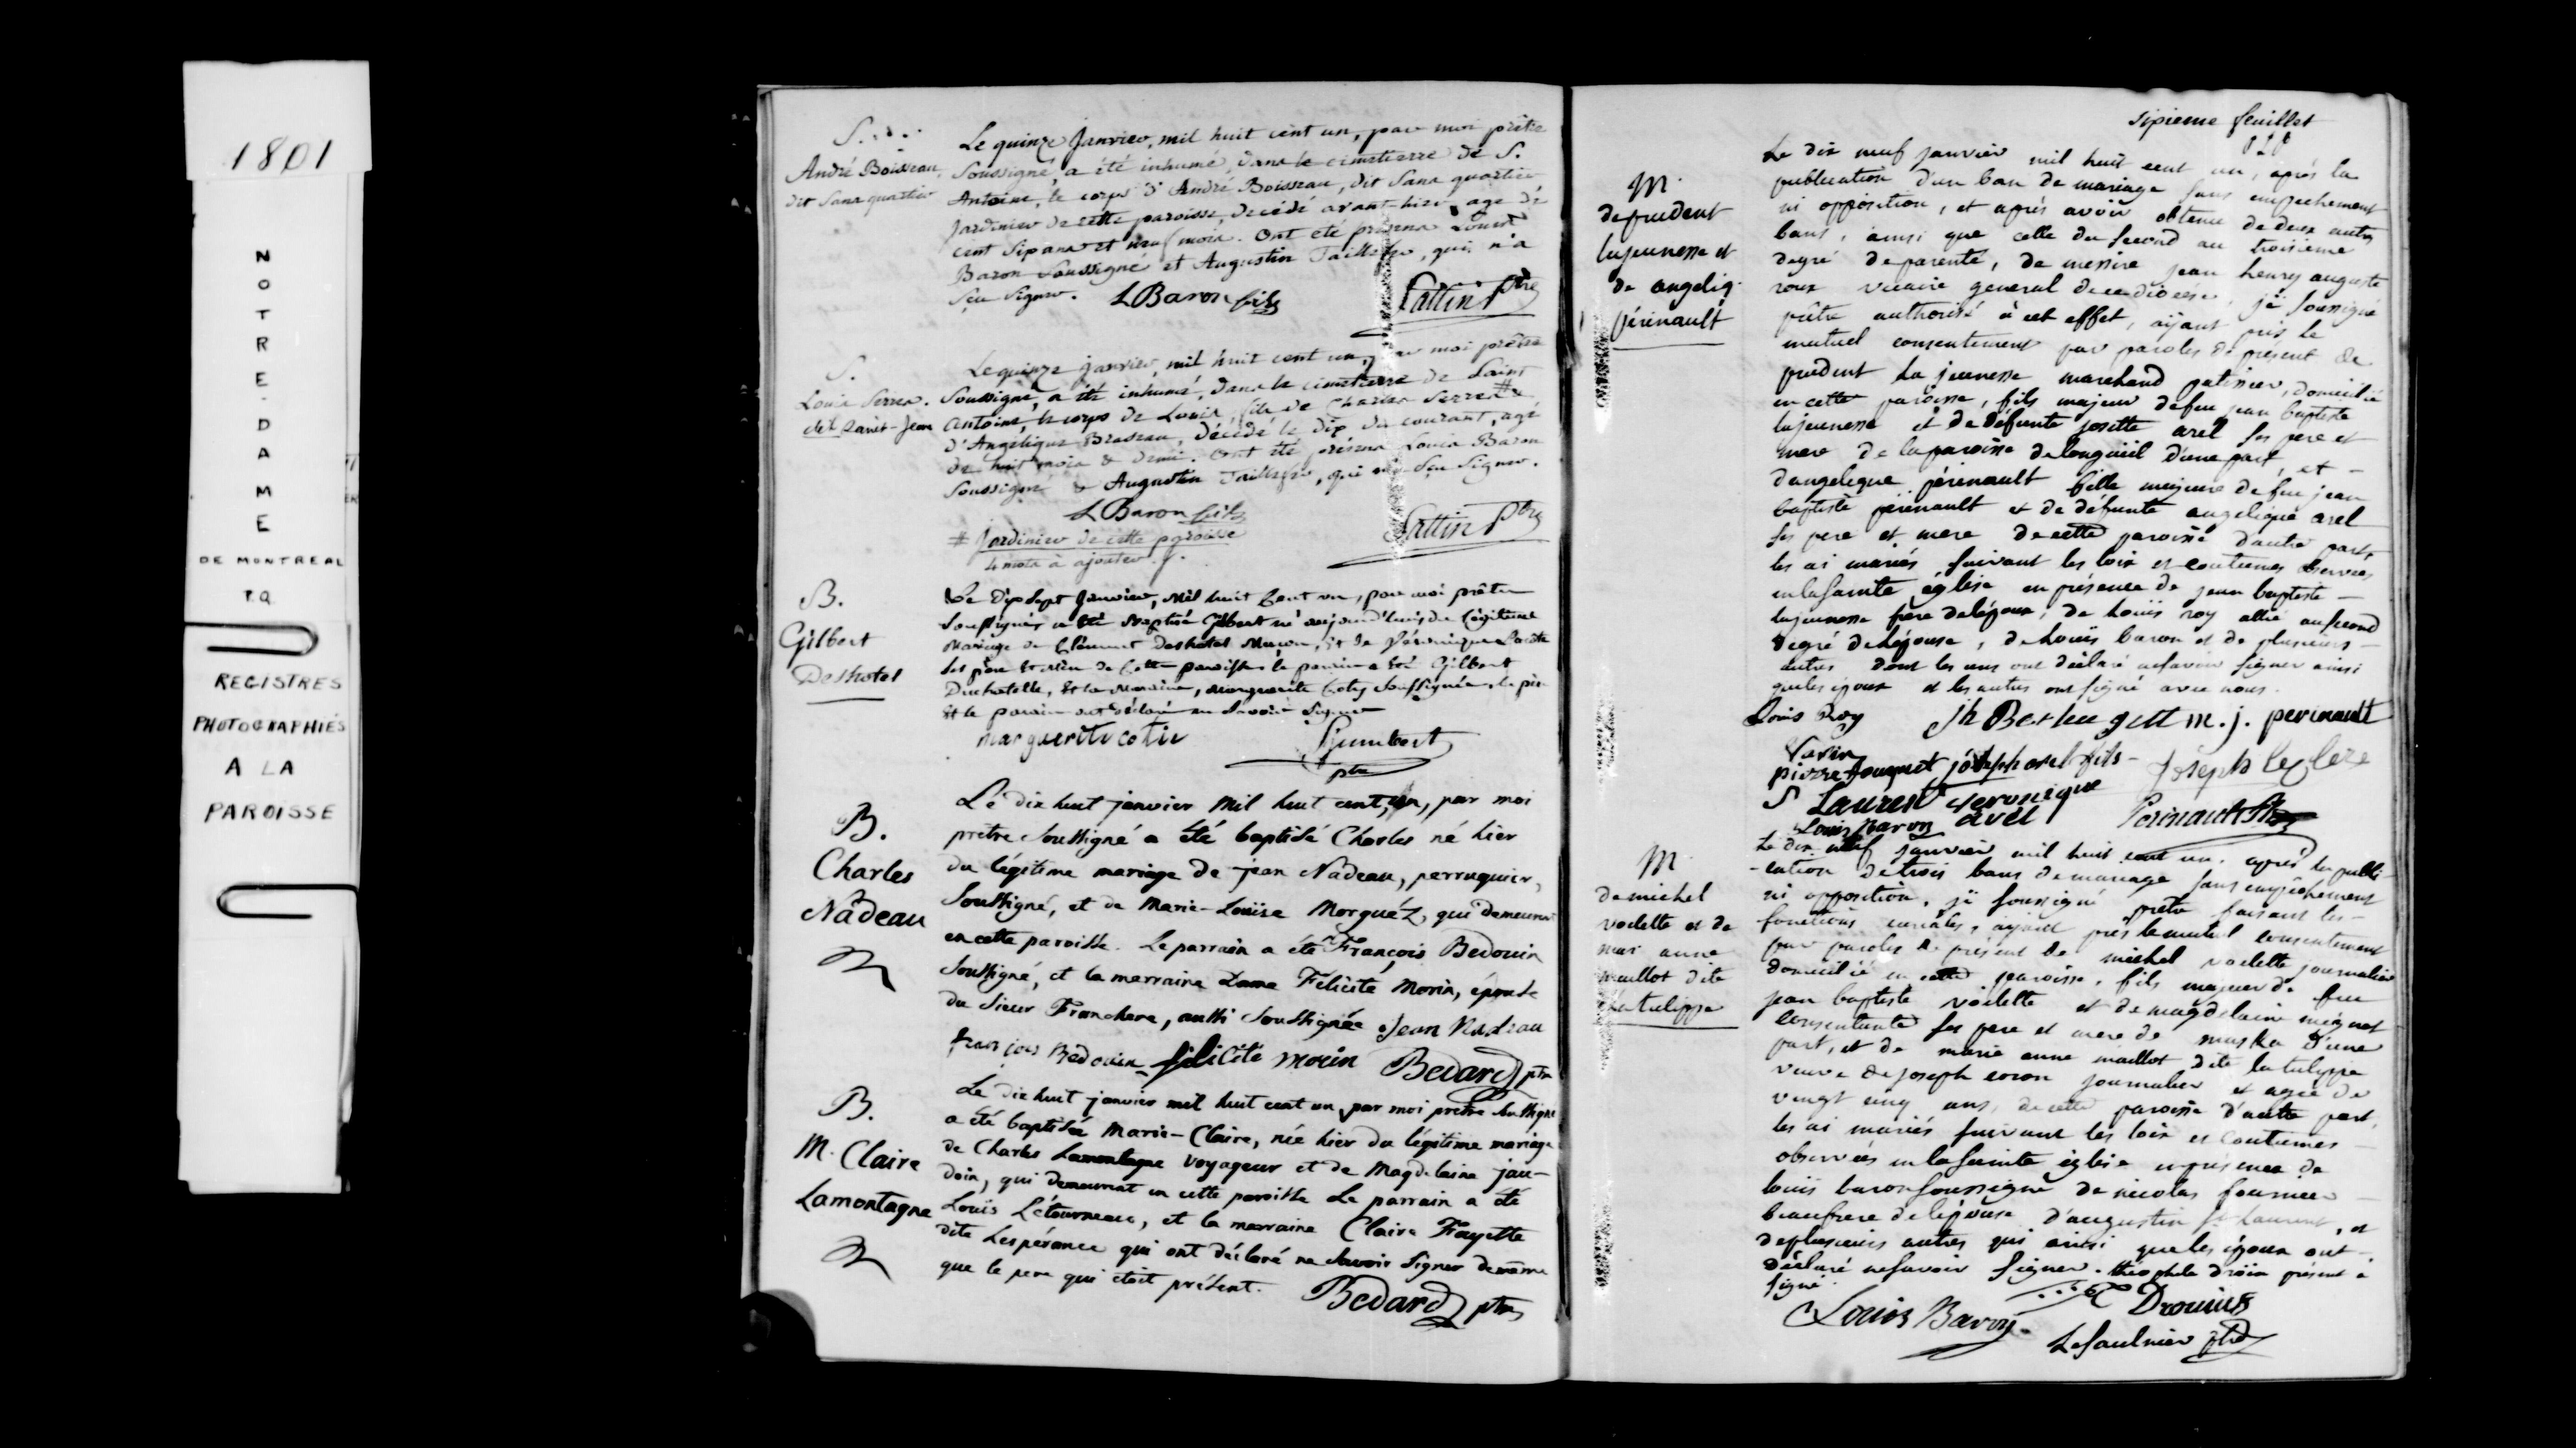 1801
NOTRE-DAME
DE MONTREAL
P.Q.
REGISTRES
PHOTOGRAPHIÉS
A LA
PAROISSE
S.
André Boisseau,
dit Sans quartier
Le quinze Janvier, mil huit cent un, par moi prêtre
Soussigné, a été inhumé, dans le cimetierre de S.
Antoine, le corps d'André Boisseau, dit Sans quartier
Jardinier de cette paroisse, décédé avant-hier, agé de
cent Six ans et neuf mois. Ont été présens Louis
Baron Soussigné et Augustin Taillefer, qui n'a
Sçu Signer. LBaron fils Sattin Ptre
S.
Louis Serres.
del. Saint-Jean
Le quinze janvier, mil huit cent un, par moi prêtre
Soussigné, a été inhumé, dans le cimetierre de Saint
Antoine, le corps de Louis, fils de Charles Serres #&
d'Angélique Brazeau, décédé le dix du courant, agé
de huit mois & demi. Ont été présens Louis Baron
Soussigné & Augustin Taillefer, qui n'a Sçu Signer.
LBaron fils Sattin Ptre
# Jardinier de cette paroisse
4 mots à ajouter.
B.
Gilbert
Deshotel
Le Dix Sept Janvier, Mil huit Cent un, par moi prêtre
Soussigné a été Baptisé Gilbert né aujourd'huis du Légitime
Mariage de Clément Deshotel Maçon, Et de Véronique
Ses père Et Mère de Cette paroisse le parain a Été Gilbert
Duchatelle, Et la Maraine, Marguerite Cotty Soussignée, le père
Et le parain ont déclaré ne Savoir Signer
marguerite cotie Humbert
ptre
B.
Charles
Nadeau
Le dix huit janvier Mil huit cent, un, par moi
prêtre Soussigné a été baptisé Charles né hier
du légitime mariage de jean Nadeau, perruquier,
Soussigné, et de Marie-Louise Morguéz, qui demeurent
en cette paroisse. Le parrain a été François Bedouin
Soussigné, et la marraine Dame Felicité Morin, épouse
du Sieur Franchere, aussi Soussignée Jean Nadeau
françois Bedouin félicité morin Bedard ptre
B.
M. Claire
Lamontagne
Le dix huit janvier mil huit cent un, par moi prêtre Soussigné
a été baptisée Marie-Claire, née hier du légitime mariage
de Charles Lamontagne voyageur et de Magdelaine jau-
doin, qui demeurent en cette paroisse Le parrain a été
Louis Létourneau, et la marraine Claire Fayette
dite Lespérance qui ont déclaré ne Savoir Signer de même
que le pere qui étoit présent. Bedard ptre
Sixieme feuillet
M.
de prudent
lajeunesse et
de angeliq.
périnault
Le dix neuf janvier mil huit cent un, après la
publication d'un ban de mariage sans empechement
ni opposition, et après avoir obtenu de deux autres
bans, ainsi que celle du second au troisieme
degré de parenté, de messire jean henry auguste
roux vicaire general de ce diocèse, jé soussigné
prêtre authorisé à cet effet, aÿant pris le
mutuel consentement par paroles de présent de
prudent lajeunesse marchand patissier, domicilié
en cette paroisse, fils majeur de feu jean baptiste
lajeunesse et de défunte josette arel ses pere et
mere de la paroisse de longueil d'une part, et -
d'angelique périnault fille majeure de feu jean
baptiste périnault et de défunte angelique arel
ses pere et mere de cette paroisse d'autre part,
les ai mariés suivant les loix et coutumes observées
en la sainte église en présence de jean baptiste -
lajeunesse frere de l'époux, de louis roy allié au second
degré de l'épouse, de louis baron et de plusieurs -
autres dont les uns ont déclaré ne savoir signer ainsi
que les époux et les autres ont signé avec nous.
Louis Roy m. j. perinault
pierre fouquet joseph arel fils - Joseph leclere
S Laurent veronique
Louis Baron arel Perinault Ptre
M
de michel
voilette et de
marie anne
maillot dite
latulippe
Le dix neuf janvier mil huit cent un. après la publi-
-cation de trois bans de mariage sans empêchement
ni opposition, jé soussigné prêtre faisant les -
fonctions curiales, aÿant pris le mutuel consentement
par paroles de présent de michel voilette journalier
domicilié en cette paroisse, fils majeur de feu
jean baptiste voilette et de magdelaine mignot
consentante ses pere et mere de maska d'une
part, et de marie anne maillot dite latulippe
veuve de joseph coron journalier et agée de
vingt cinq ans, de cette paroisse d'autre part,
les ai mariés suivant les loix et coutumes -
observées en la sainte église en présence de
louis baron soussigné de nicolas fournier -
beaufrere de l'épouse d'augustin St laurent, et
de plusieurs autres qui ainsi que les époux ont -
déclaré ne savoir signer. théophile droüin présent a
signé.
Louis Baron Drouin
LeSaulnier ptre